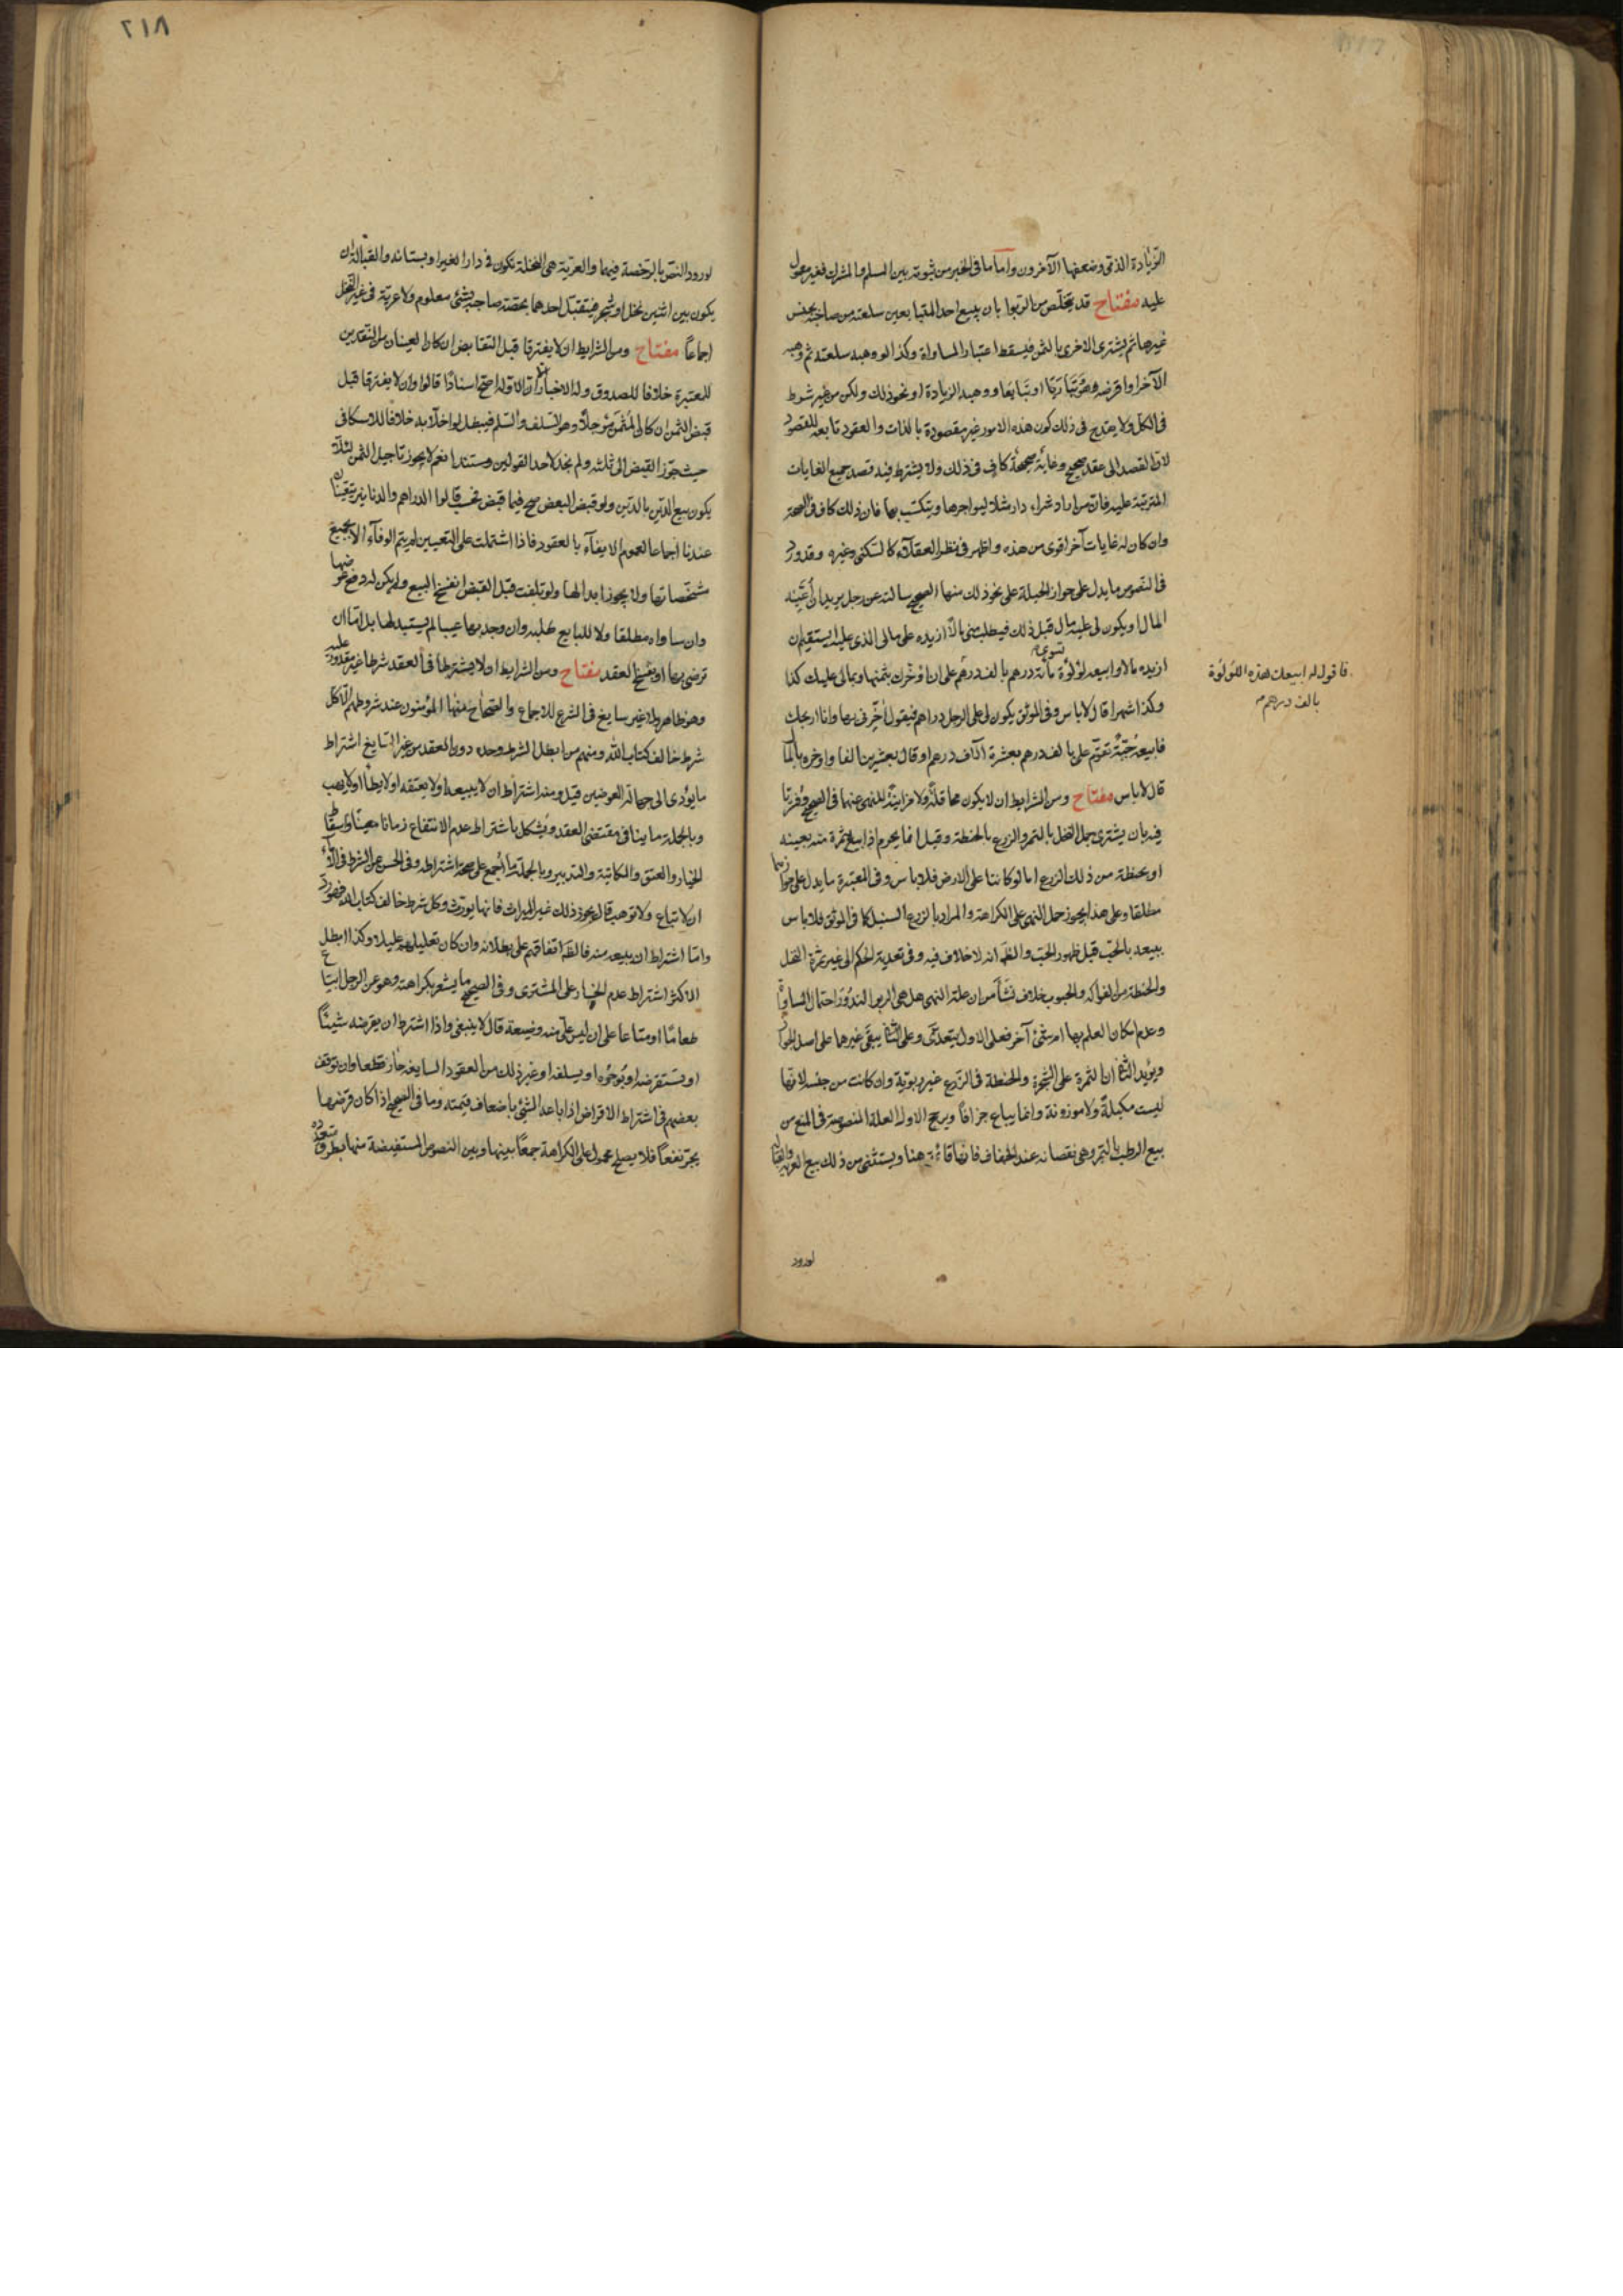 الزيادة الذي وضعفها الآخرون واما ما فى الخبر من ثبوته بين المسلم والمشرك فغير معمول
عليه مفتاح قد يتخلص من الربوا بان يبيع احد المتبايعين سلعته من صاحبه بجنس
غيرها ثم يشترى الاخرى بالثمن فيسقط اعتبار المساواة وكذا لو وهبه سلعته ثم وهبه
الآخر او اقرضه هو وتباريا او تبايعا ووهبه الزيادة او نحو ذلك ولكن من غير شرط
فى الكل ولا يقدح فى ذلك كون هذه الامور غير مقصودة بالذات والعقود تابعة للقصود
لان القصد الى عقد صحيح وغاية صحيحة كاف فى ذلك ولا يشترط فيه قصد جميع الغايات
المترتبة عليه فان من اراد شراء دار مثلا ليواجرها ويتكسب بها فان ذلك كاف فى الصحة
وان كان له غايات آخر اقوى من هذه واظهر فى نظر العقلاء كالسكنى وغيره وقد ورد
فى النصوص ما يدل على جواز الحيلة على نحو ذلك منها الصحيح سالته عن رجل يريد ان اعينه
المال او يكون لى عليه مال قبل ذلك فيطلب منى مالا ازيده على مالى الذى عليه ايستقيم ان
ازيده مالا وابيعه لؤلؤة تسوى مائة درهم بالف درهم على ان اؤخرك بثمنها وبمالى عليك كذا
فاقول له ابيعك هذه اللؤلؤة
بالف درهم
وكذا شهرا قال لا باس وفى الموثق يكون لى على الرجل دراهم فيقول اخرنى بها وانا اربحك
فابيعه جبة تقوم على بالف درهم بعشرة آلاف درهم او قال بعشرين الفا واوخره بالمال
قال لا باس مفتاح ومن الشرايط ان لا يكون محاقلة ولا مزابنة للنهى عنهما فى الصحيح وفسرتا
فيه بان يشترى حمل النخل بالتمر والزرع بالحنطة وقيل انما يحرم اذا بيع ثمرة منه بعينه
او بحنطة من ذلك الزرع اما لو كانتا على الارض فلا باس وفى المعتبرة ما يدل على جوازهما
مطلقا وعلى هذا يجوز حمل النهى على الكراهة والمراد بالزرع السنبل كما فى الموثق فلا باس
ببيعه بالحب قبل ظهور الحب والظ انه لا خلاف فيه وفى تعدية الحكم الى غير ثمرة النخل
والحنطة من الفواكه والحبوب خلاف نشأ من ان علة النهى هل هى الربوا لندور احتمال المساواة
وعدم امكان العلم بها ام شئ آخر فعلى الاول يتعدى وعلى الثانى يبقى غيرهما على اصل الجواز
ويؤيد الثانى ان الثمرة على الشجرة والحنطة فى الزرع غير ربوية وان كانت من جنسه لانها
ليست مكيلة ولا موزونة وانما يباع جزافا ويرجح الاول العلة المنصوصة فى المنع من
بيع الرطب بالتمر وهى نقصانه عند الجفاف فانها قائمة هنا ويستثنى من ذلك بيع العرية والقبالة
لورود
٢١٨
لورود النص بالرخصة فيهما والعرية هى النخلة تكون فى دار الغير او بستانه والقبالة ان
يكون بين اثنين نخل او شجر فيتقبل احدهما بحصة صاحبه بشئ معلوم ولا عرية فى غير النخل
اجماعا مفتاح ومن الشرايط ان لا يفترقا قبل التقابض ان كان العينان من النقدين
للمعتبرة خلافا للصدوق وله الاخبار الا ان الاوله اصح اسنادا قالوا وان لا يفترقا قبل
قبض الثمن ان كان المثمن مؤجلا وهو السلف والسلم فيبطل لو اخلا به خلافا للاسكافى
حيث جوز القبض الى ثلثة ولم نجد لاحد القولين مستندا نعم لا يجوز تاجيل الثمن لئلا
يكون بيع الدين بالدين ولو قبض البعض صح فيما قبض فحسب قالوا الدراهم والدنانير يتعينان
عندنا اجماعا لعموم الايفاء بالعقود فاذا اشتملت على التعيين لم يتم الوفاء الا بجميع
مشخصاتها ولا يجوز ابدالها ولو تلفت قبل القبض انفسخ البيع ولم يكن له دفع عوضها
وان ساواه مطلقا ولا للبايع طلبه وان وجد بها عيبا لم يستبدلها بل اما ان
ترضى بها او يفسخ العقد مفتاح ومن الشرايط ان لا يشترطا فى العقد شرطا غير مقدور عليه
وهو ظاهر ولا غير سايغ فى الشرع للاجماع والصحاح منها المؤمنون عند شروطهم الا كل
شرط خالف كتاب الله ومنهم من ابطل الشرط وحده دون العقد ومن غير السايغ اشتراط
ما يؤدى الى جهالة العوضين قيل ومنه اشتراط ان لا يبيعه او لا يعتقه او لا يطأ او لا يهب
وبالجملة ما ينافى مقتضى العقد ويشكل باشتراط عدم الانتفاع زمانا معينا واسقاط
الخيار والعتق والمكاتبة والتدبير وبالجملة ما اجمع على صحة اشتراطه وفى الحسن عن الشرط فى الاماء
ان لا تباع ولا توهب قال يجوز ذلك غير الميراث فانها يورث وكل شرط خالف كتاب الله فهو رد
واما اشتراط ان يبيعه منه فالظ اتفاقهم على بطلانه وان كان تعليلهم عليلا وكذا ابطل
الاكثر اشتراط عدم الخسار على المشترى وفى الصحيح ما يشعر بكراهته وهو عن الرجل ابتاع
طعاما او متاعا على ان ليس على منه وضيعة قال لا ينبغى واذا اشترط ان يقرضه شيئا
او يستقرضه او يؤجره او يسلفه او غير ذلك من العقود السايغة جاز قطعا وان توقف
بعضهم فى اشتراط الاقراض اذا باعه الشئ باضعاف قيمته وما فى الصحيح اذا كان قرضها
يجر نفعا فلا يصلح محمول على الكراهة جمعا بينها وبين النصوص المستفيضة منها بطرق متعددة